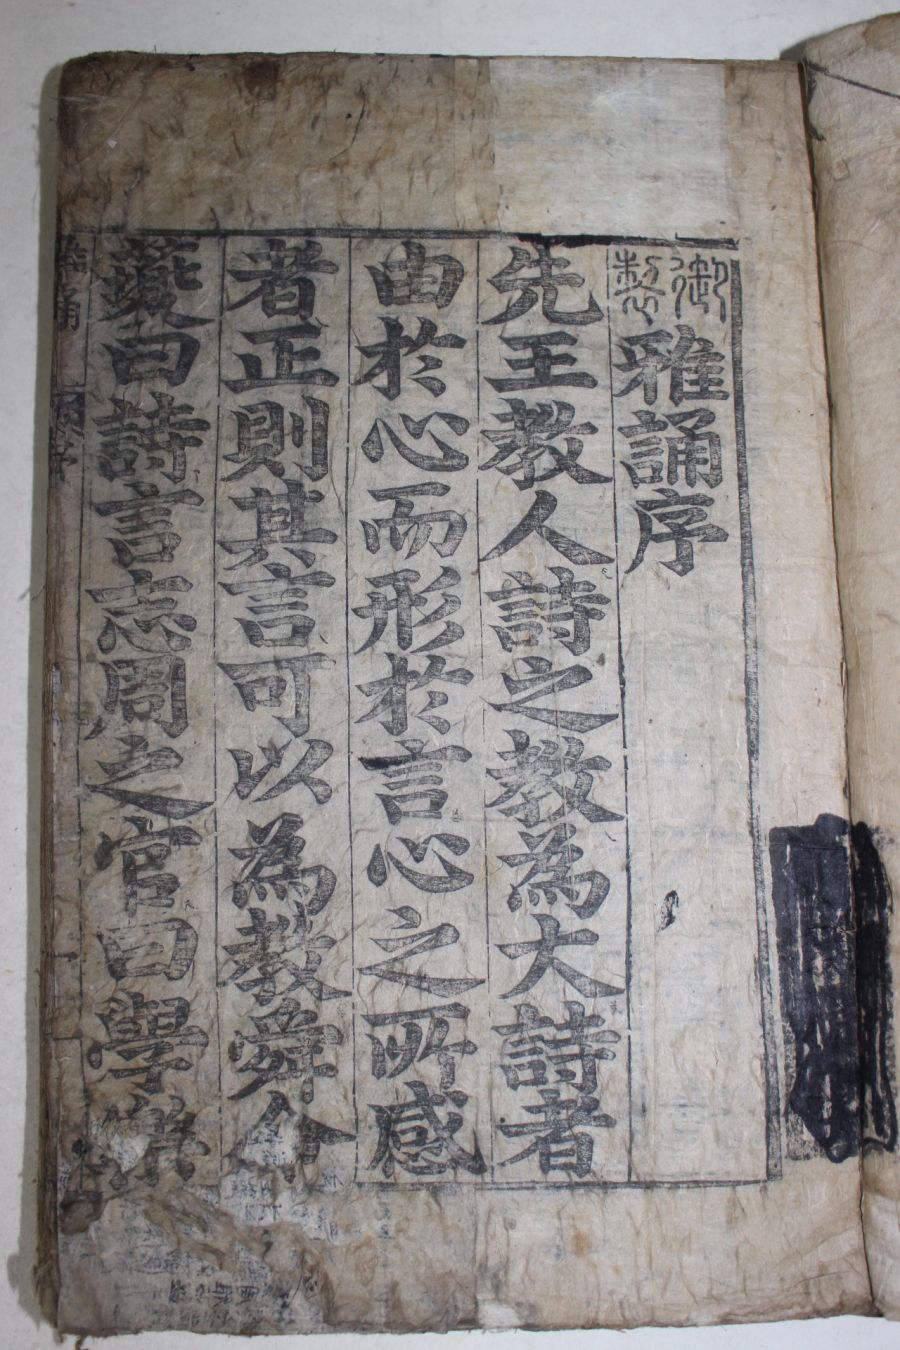 御製雅誦序
先王教人詩之教為大詩者
由於心而形於言心之所感
者正則其言可以為教舜命
夔曰詩言志周之官曰學樂